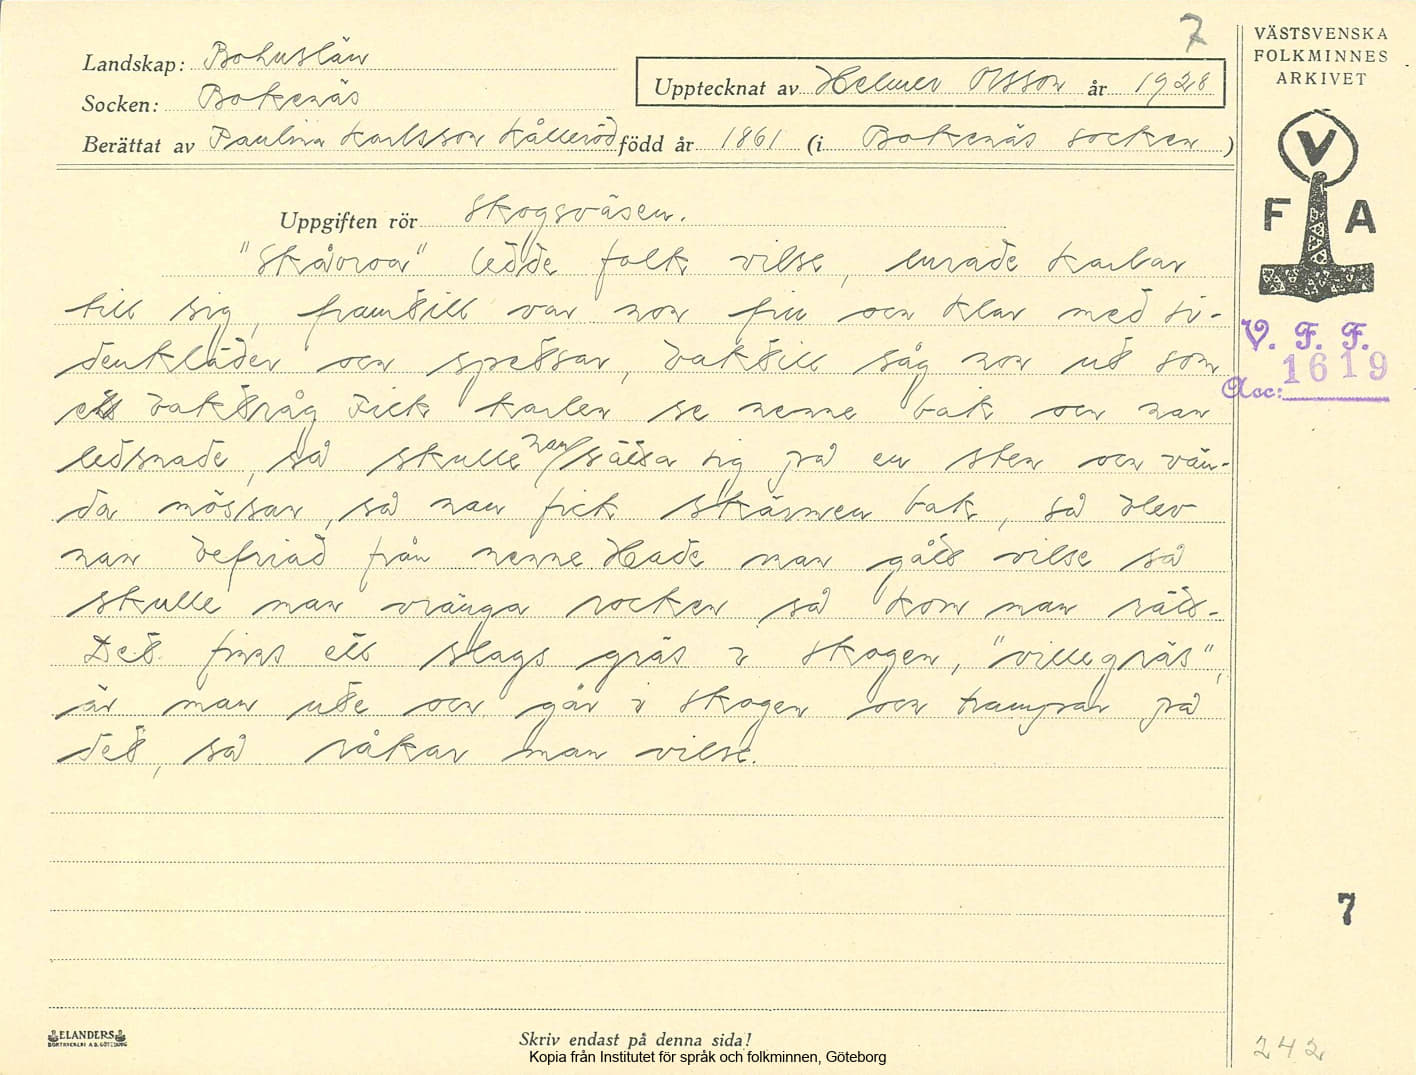 7
Landskap: Bohuslän
Socken: Bokenäs
Berättat av Paulina Karlsson Kålleröd född år 1861 (i Bokenäs socken)
Upptecknat av Helmer Olsson år 1928
VÄSTSVENSKA
FOLKMINNES
ARKIVET
V
F A
V. F. F.
Acc: 1619
Uppgiften rör Skogsväsen.
"Skåvroa" ledde folk vilse, lurade karlar
till sig, framtill var hon fin och klar med si-
denkläder och spetsar, baktill såg hon ut som
ett baktråg Fick karlen se henne bak och han
ledsnade, så skulle han sätta sig på en sten och vän-
da mössan, så han fick skärmen bak, så blev
han befriad från henne. Hade man gått vilse så
skulle man vränga rocken så kom man rätt.
Det finns ett slags gräs i skogen, "villegräs",
är man ute och går i skogen och trampar på
det, så råkar man vilse.
7
ELANDERS
Skriv endast på denna sida!
Kopia från Institutet för språk och folkminnen, Göteborg
242